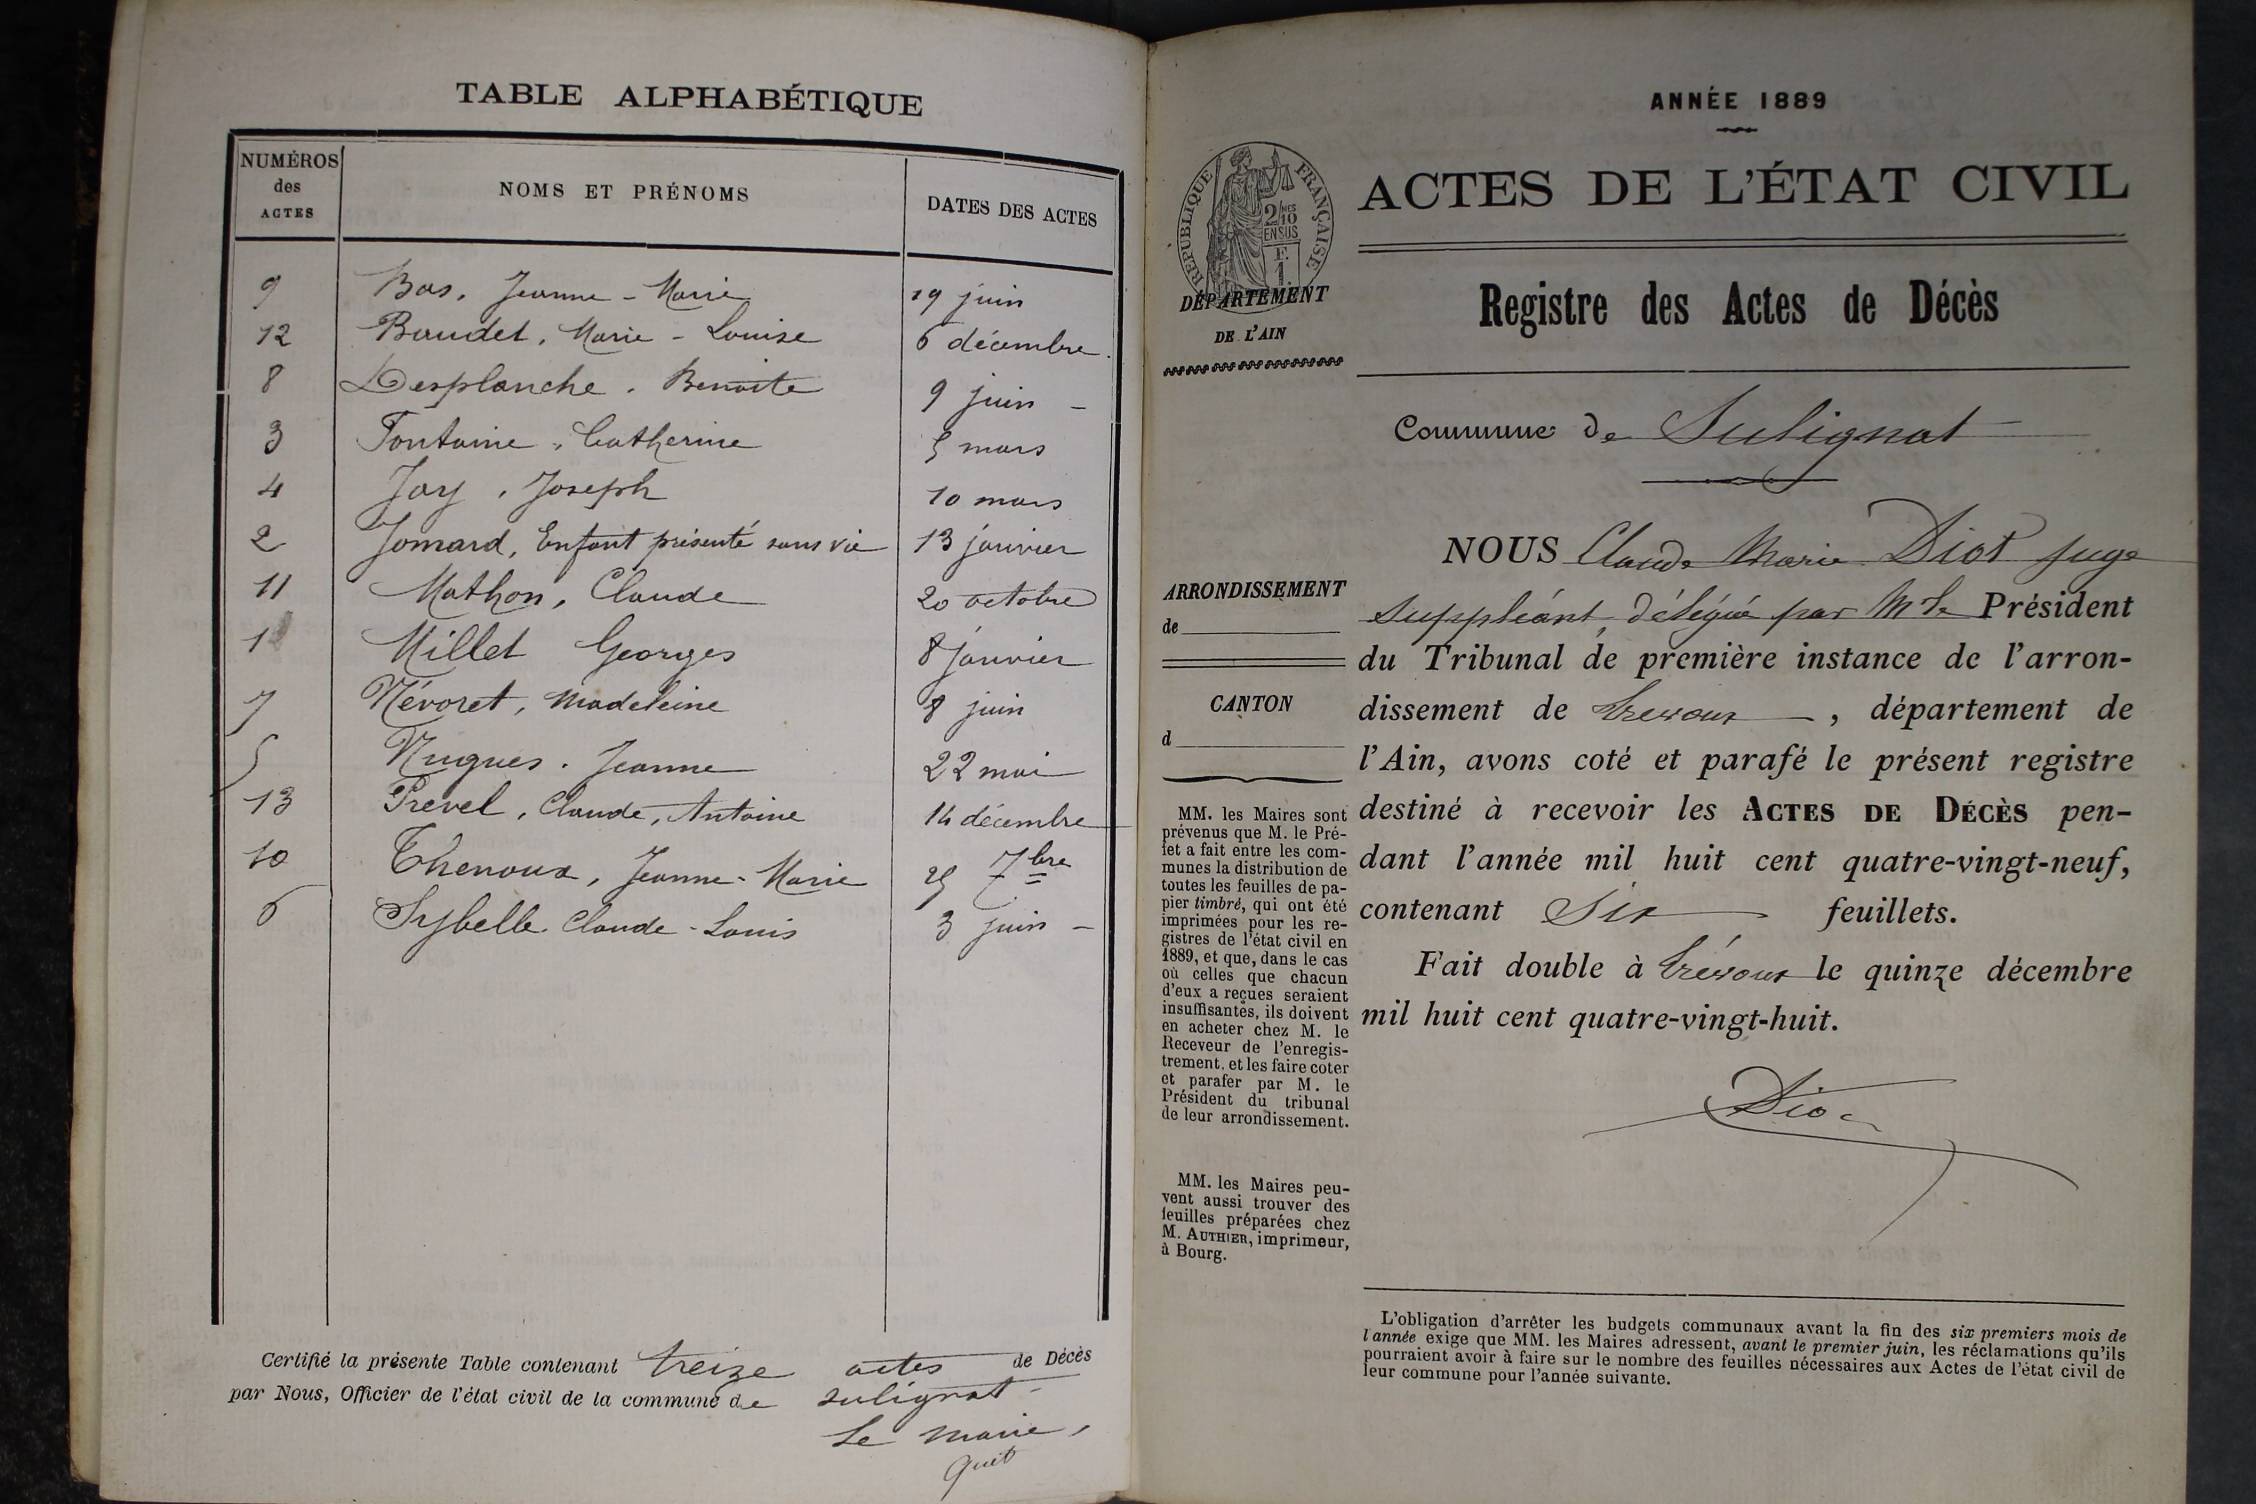 TABLE ALPHABÉTIQUE
NUMÉROS des ACTES
NOMS ET PRÉNOMS
DATES DES ACTES
9 Bas, Jeanne-Marie 19 juin
12 Baudet, Marie-Louise 6 décembre
8 Desplanche, Benoite 9 juin
3 Fontaine, Catherine 5 mars
4 Joy, Joseph 10 mars
2 Jomard, Enfant présenté sans vie 13 janvier
11 Mathon, Claude 20 octobre
1 Millet Georges 8 janvier
7 Névoret, Madeleine 8 juin
5 Nugues, Jeanne 22 mai
13 Prevel, Claude, Antoine 14 décembre
10 Thenoux, Jeanne-Marie 25 7bre
6 Sybelle Claude-Louis 3 juin
Certifié la présente Table contenant treize actes de Décès
par Nous, Officier de l'état civil de la commune de sulignat
Le Maire,
ANNÉE 1889
RÉPUBLIQUE FRANÇAISE
2/10 MES
EN SUS
F.
1
DÉPARTEMENT
DE L'AIN
ACTES DE L'ÉTAT CIVIL
Registre des Actes de Décès
Commune de Sulignat
ARRONDISSEMENT
de
CANTON
d
MM. les Maires sont
prévenus que M. le Pré-
fet a fait entre les com-
munes la distribution de
toutes les feuilles de pa-
pier timbré, qui ont été
imprimées pour les re-
gistres de l'état civil en
1889, et que, dans le cas
où celles que chacun
d'eux a reçues seraient
insuffisantes, ils doivent
en acheter chez M. le
Receveur de l'enregis-
trement, et les faire coter
et parafer par M. le
Président du tribunal
de leur arrondissement.
MM. les Maires peu-
vent aussi trouver des
feuilles préparées chez
M. AUTHIER, imprimeur,
à Bourg.
NOUS Claude Marie Diot juge
suppléant, délégué par Mr le Président
du Tribunal de première instance de l'arron-
dissement de Trévoux, département de
l'Ain, avons coté et parafé le présent registre
destiné à recevoir les ACTES DE DÉCÈS pen-
dant l'année mil huit cent quatre-vingt-neuf,
contenant Six feuillets.
Fait double à Trévoux le quinze décembre
mil huit cent quatre-vingt-huit.
Diot
L'obligation d'arrêter les budgets communaux avant la fin des six premiers mois de
l'année exige que MM. les Maires adressent, avant le premier juin, les réclamations qu'ils
pourraient avoir à faire sur le nombre des feuilles nécessaires aux Actes de l'état civil de
leur commune pour l'année suivante.